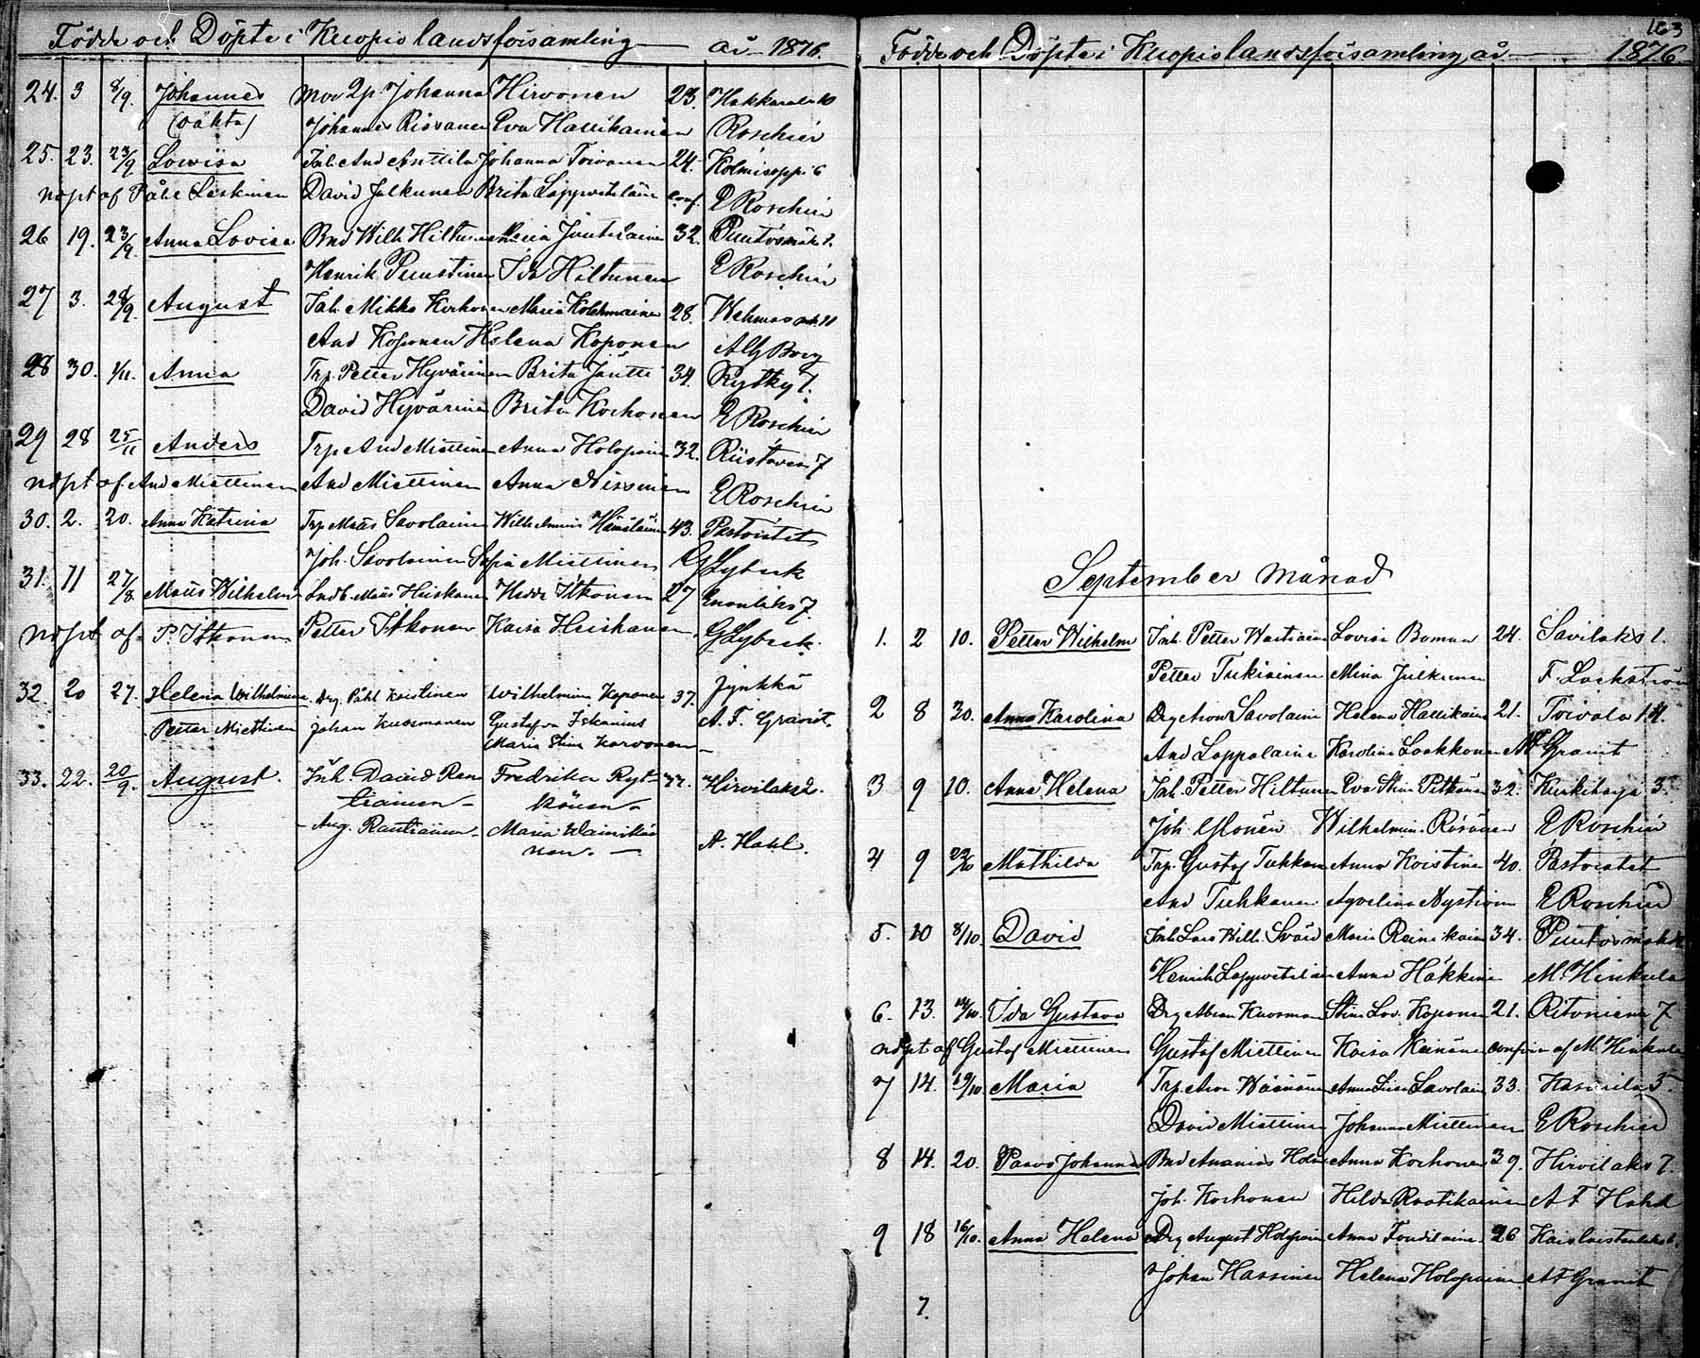 Födde och Döpte i Kuopio landsförsamling år 1876.
24. 3 8/9. Johannes Mor 2p. Johanna Hirvonen 23. Hakkarala 10
(oäkta) Johannes Rissanen Eva Hallikainen Roschier
25. 23. 23/9 Lowisa Inh. And Anttila Johanna Toivanen 24. Kolmisoppi 6
nöpt af Påhl Leskinen David Julkunen Brita Lappveteläinen conf. E Roschier
26 19. 23/9. Anna Lovisa Bnd Wilh Hiltunen Maria Jäntelainen 32. Puutosmäki 7.
Henrik Puustinen Ida Hiltunen E Roschier
27 3. 28/9. August Inh. Mikko Korhonen Maria Kolehmainen 28. Wehmas
And Koponen Helena Koponen A G Borg
28 30. 1/11. Anna Trp. Petter Hyvärinen Brita Jäntti 34. Rytky 7.
David Hyvärinen Brita Korhonen E Roschier
29 28 25/11 Anders Trp And Miettinen Anna Holopainen 32. Riistavesi 7
nöpt af And Miettinen And Miettinen Anna Nissinen E Roschier
30. 2. 20. Anna Katrina Trp Matts Savolainen Wilhelmina Hämäläinen 43. Pastoratet
Joh. Savolainen Sofia Miettinen G Lybeck
31. 11 27/8. Matts Wilhelm Matts Huiskonen Hedda Itkonen 27 Enonlaks 7.
nöpt af P. Itkonen Petter Itkonen Kaisa Huiskonen G Lybeck.
32. 20 27. Helena Wilhelmina Drg. Påhl Koistinen Wilhelmina Koponen 37. Jynkkä
Petter Miettinen Johan Kuosmanen Gustafva Iskanius A. F. Granit.
Maria Stina Karvonen
33. 22. 20/9. August. Inh. David Rau- Fredrika Ryt- 27. Hirvilaks 2.
tiainen könen
Aug. Rautiainen Maria Wainikai- A. Hahl.
nen.
163
Födde och Döpte i Kuopio landsförsamling år 1876
September månad
1. 2 10. Petter Wilhelm Inh. Petter Wartiainen Lovisa Boman 24. Savilaks 1.
Petter Tukiainen Mina Julkunen F. Lackström
2 8 30. Anna Karolina Drg Aron Savolainen Helena Hallikainen 21. Toivala 14.
And Lappalainen Karolina Laakkonen A F Granit
3 9 10. Anna Helena Inh. Petter Hiltunen Eva Stina Pitkänen 32. Kurkiharju 3.
Joh. Ylönen Wilhelmina Räsänen E Roschier
4 9 22/10 Mathilda Trp. Gustaf Tuhkanen Anna Koistinen 40. Pastoratet
And Tuhkanen Agvelina Nyström E Roschier
5. 10 8/10. David Inh Lars Wilh. Svärd Maria Rainikainen 34. Puutosmäki
Henrik Lappveteläinen Anna Häkkinen M. Hinkula
6. 13. 14/10. Ida Gustava Drg Abram Kuosmanen Stina Lov. Koponen 21. Ritoniemi 7
nöpt af Gustaf Miettinen Gustaf Miettinen Kaisa Keinänen confir af M. Hinkula
7 14. 19/10. Maria Trp. Aron Wäänänen Anna Lisa Savolainen 33. Kasurila 3.
David Miettinen Johanna Miettinen E Roschier
8 14. 20. Paavo Johannes Bnd Ananias Anna Korhonen 39. Hirvilaks 7.
Joh. Korhonen Hilda Raatikainen A F Hahl
9 18 16/10. Anna Helena Drg August Holopainen Anna 26
Johan Hassinen Helena Holopainen A F Granit
7.